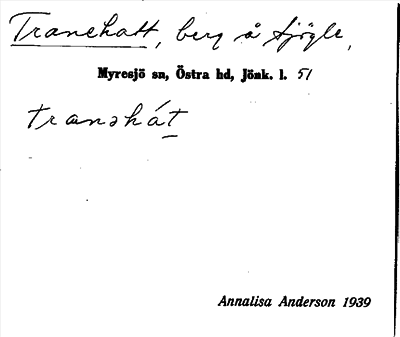 Tranehatt, berg å Sjögle,
Myresjö sn, Östra hd, Jönk. l. 51
tranəhát
Annalisa Anderson 1939